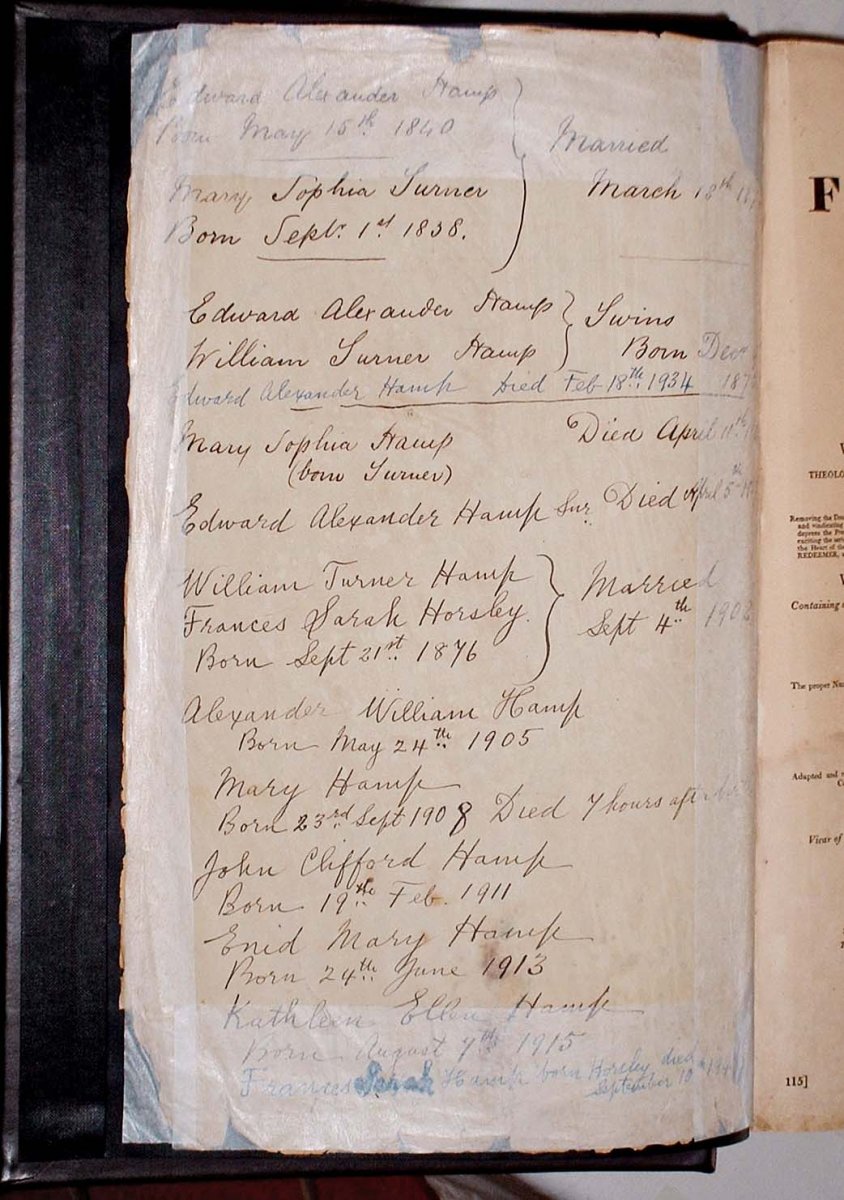 Edward Alexander Hamp
Born May 15th 1840
Married
Mary Sophia Turner
March 18th
Born Septr. 1st 1838.
Edward Alexander Hamp
Twins
William Turner Hamp
Born Decr
Edward Alexander Hamp Died Feb 18th 1934
Mary Sophia Hamp
Died April
(born Turner)
Edward Alexander Hamp Snr. Died April 5th
William Turner Hamp
Married
Frances Sarah Horsley.
Sept 4th 1902
Born Sept 21st 1876
Alexander William Hamp
Born May 24th 1905
Mary Hamp
Born 23rd Sept 1908 Died 7 hours after
John Clifford Hamp
Born 19th Feb. 1911
Enid Mary Hamp
Born 24th June 1913
Kathleen Ellen Hamp
Born August 7th 1915
Frances Sarah Hamp born Horsley died
September 10th
F
THEOLO
Removing the
and vindicating
depress the
exciting the
the Heart of the
REDEEMER,
Containing
The proper
Adapted and
Vicar of
115]